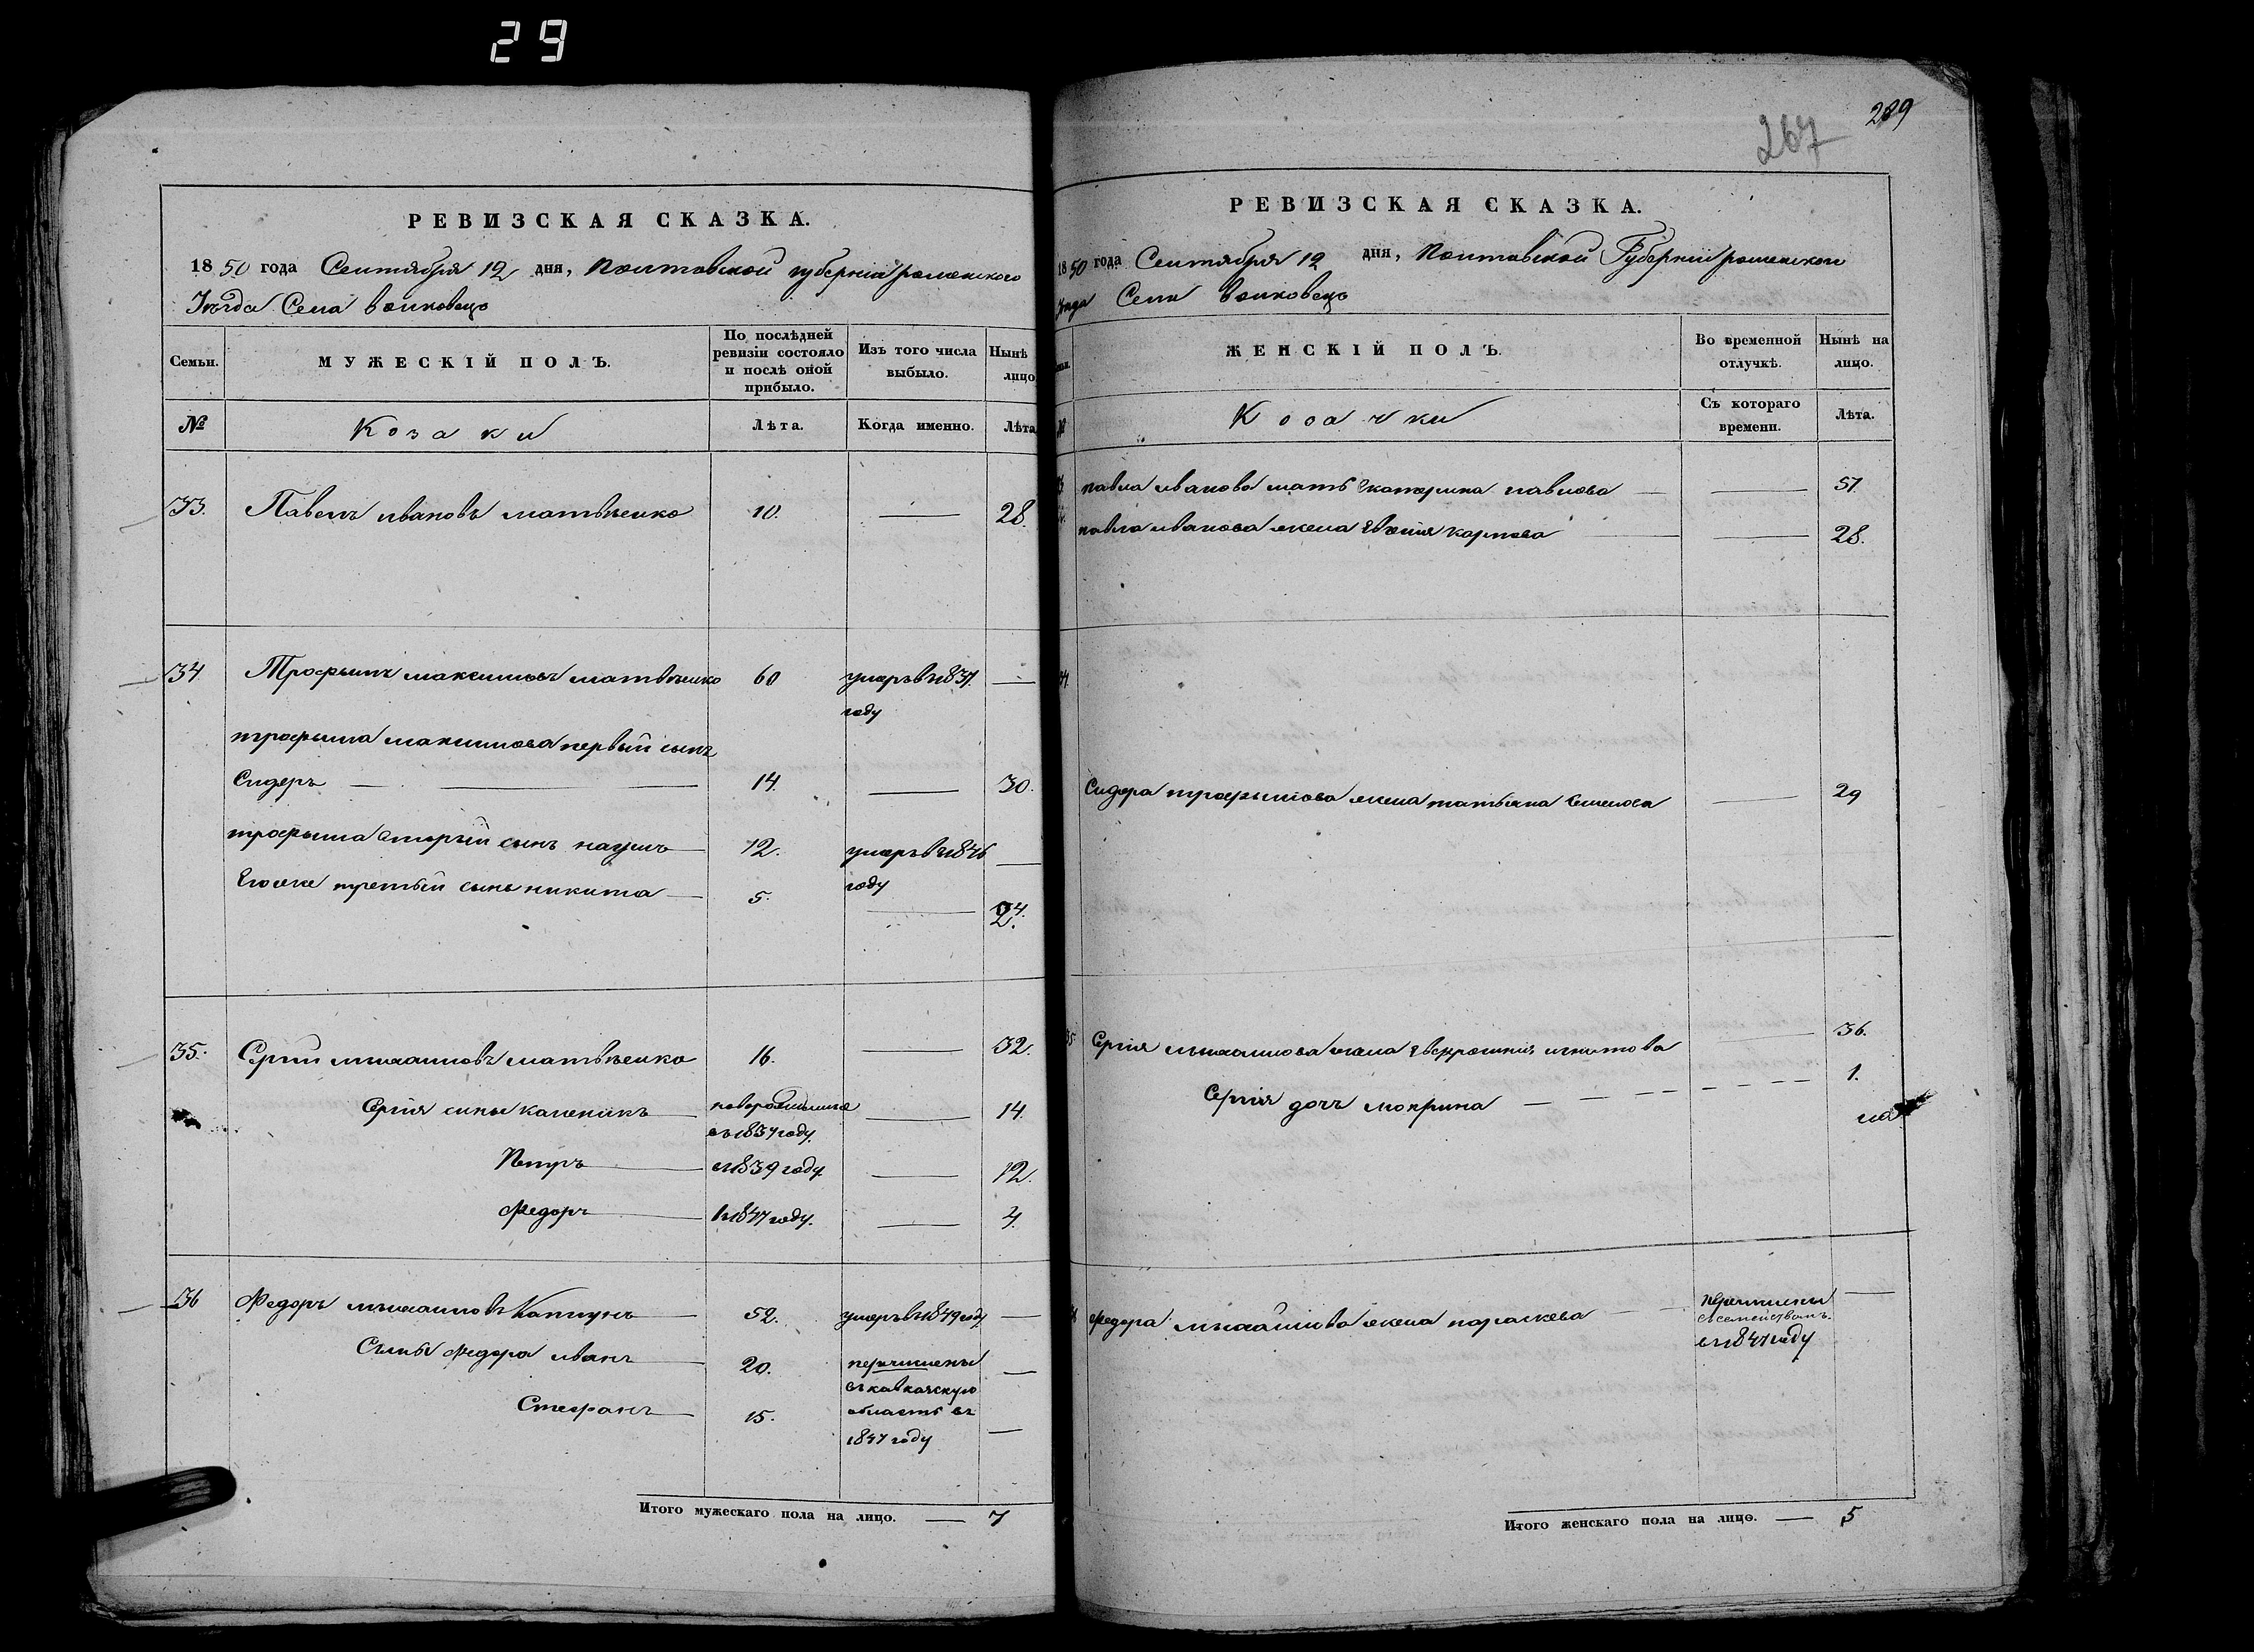 29
РЕВИЗСКАЯ СКАЗКА.
1850 года Сентября 12 дня, Полтавской губернии роменского
Уѣзда Села волковецъ
Семьи.
МУЖЕСКІЙ ПОЛЪ.
По послѣдней
ревизіи состояло
и послѣ оной
прибыло.
Изъ того числа
выбыло.
Нынѣ
лицо
№
Козаки
Лѣта.
Когда именно.
Лѣта
33. Павелъ ивановъ матвѣенко 10. — 28.
34 Трофымъ максимовъ матвѣенко 60 умеръ въ 1837. —
году
трофыма максимова первый сынъ
Сидеръ — — 14. — 30.
трофыма вторый сынъ наумъ 12. умеръ въ 1846 —
году
Егоже третый сынъ никита — 5. — 24.
35. Сергій михаиловъ матвѣенко 16. — 32.
Сергія сины каленикъ новорожденные — 14.
въ 1837 году.
Петръ въ 1839 году — 12.
Федоръ въ 1847 году. — 4.
36 Федоръ михаиловъ Каптунъ 52. умеръ в 1849 году —
Сыны Федора иванъ 20. перечислены —
въ кавказскую
Стефанъ 15. область въ
1847 году —
Итого мужескаго пола на лицо. — 7
267
289
РЕВИЗСКАЯ СКАЗКА.
1850 года Сентября 12 дня, Полтавской Губернии роменского
Уезда Села волковецъ
ЖЕНСКІЙ ПОЛЪ.
Во временной
отлучкѣ.
Нынѣ на
лицо.
№
Козачки
Съ котораго
времени.
Лѣта.
павла иванова мать Екатерина павлова — — 57.
павла иванова жена Евгенія карпова — — 28.
34.
Сидера трофымова жена татьяна Семенова — 29
35. Сергія михаилова жена Евфросинія игнатова — 36.
Сергія дочь мокрина — — — — 1.
36 Федора михаилова жена параскева — перечислены —
съ семействомъ
въ 1847 году
Итого женскаго пола на лицо. — 5